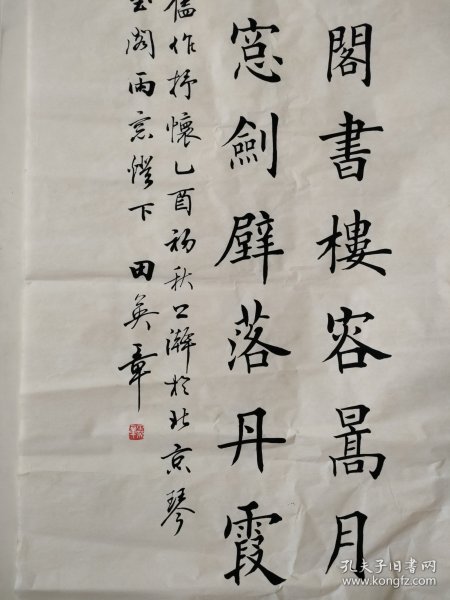 閣書樓容暠月
窓劍壁落丹霞
作抒懷乙酉初秋澣於北京琴
閣雨窓燈下 田英章
孔夫子旧书网
www.kongfz.com